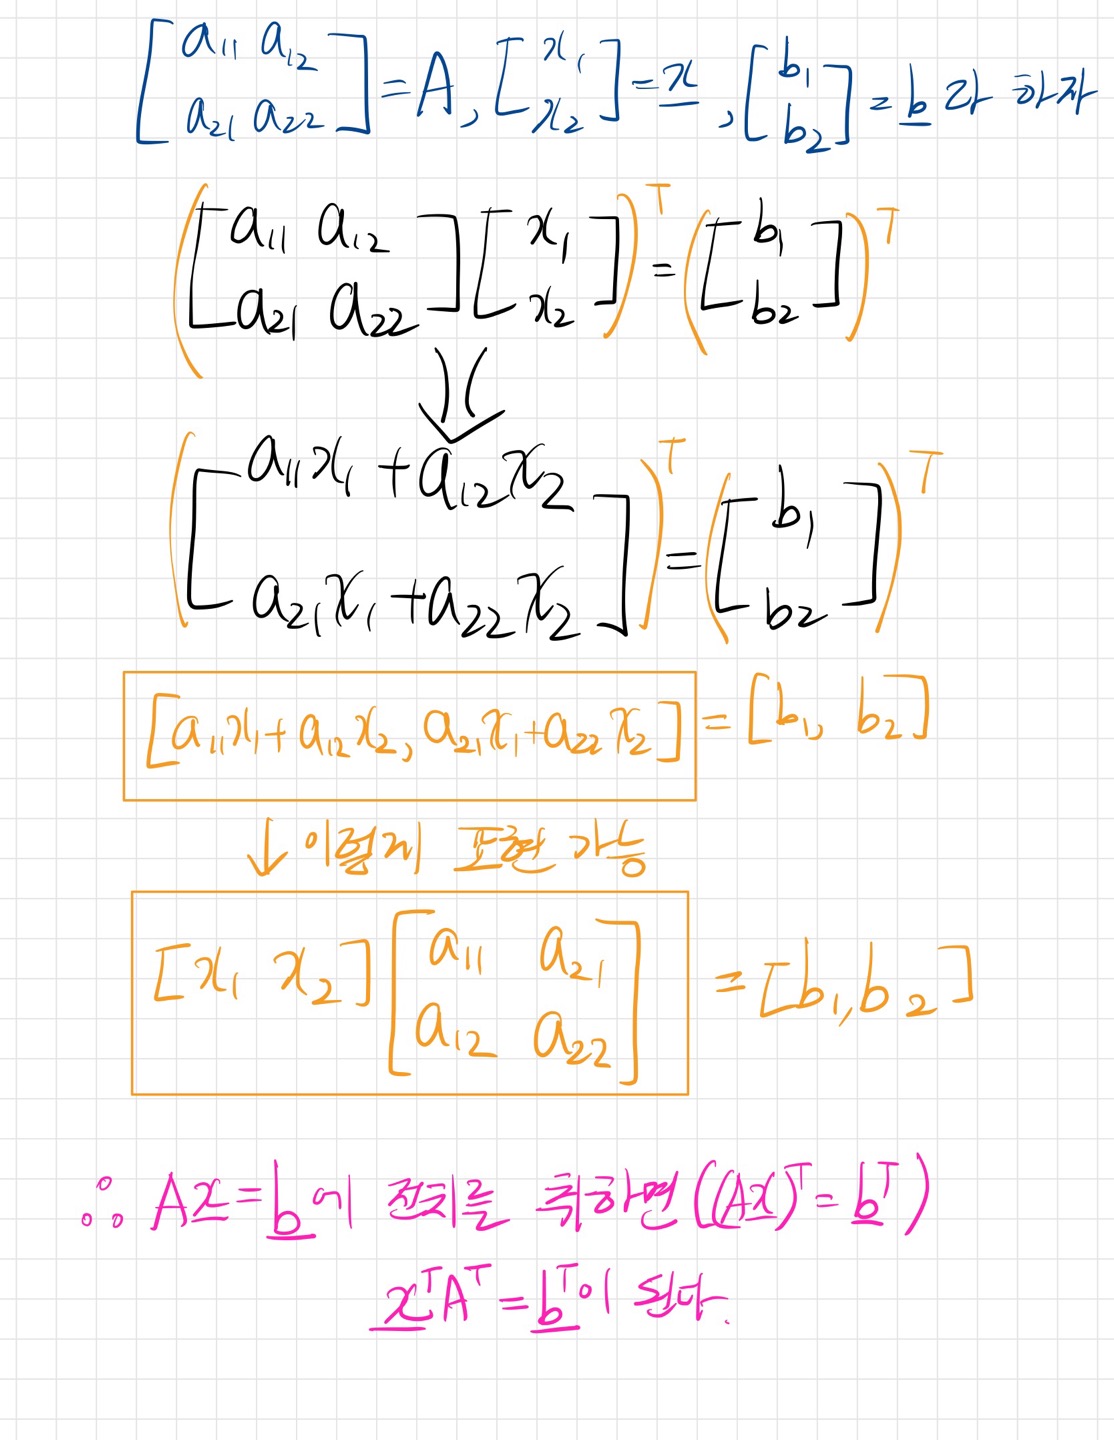 [a₁₁ a₁₂; a₂₁ a₂₂] = A, [x₁; x₂] = x, [b₁; b₂] = b 라 하자
([a₁₁ a₁₂; a₂₁ a₂₂][x₁; x₂])ᵀ = ([b₁; b₂])ᵀ
([a₁₁x₁ + a₁₂x₂; a₂₁x₁ + a₂₂x₂])ᵀ = ([b₁; b₂])ᵀ
[a₁₁x₁ + a₁₂x₂, a₂₁x₁ + a₂₂x₂] = [b₁, b₂]
↓ 이렇게 표현 가능
[x₁ x₂][a₁₁ a₂₁; a₁₂ a₂₂] = [b₁, b₂]
∴ Ax = b에 전치를 취하면 ((Ax)ᵀ = bᵀ)
xᵀAᵀ = bᵀ이 된다.